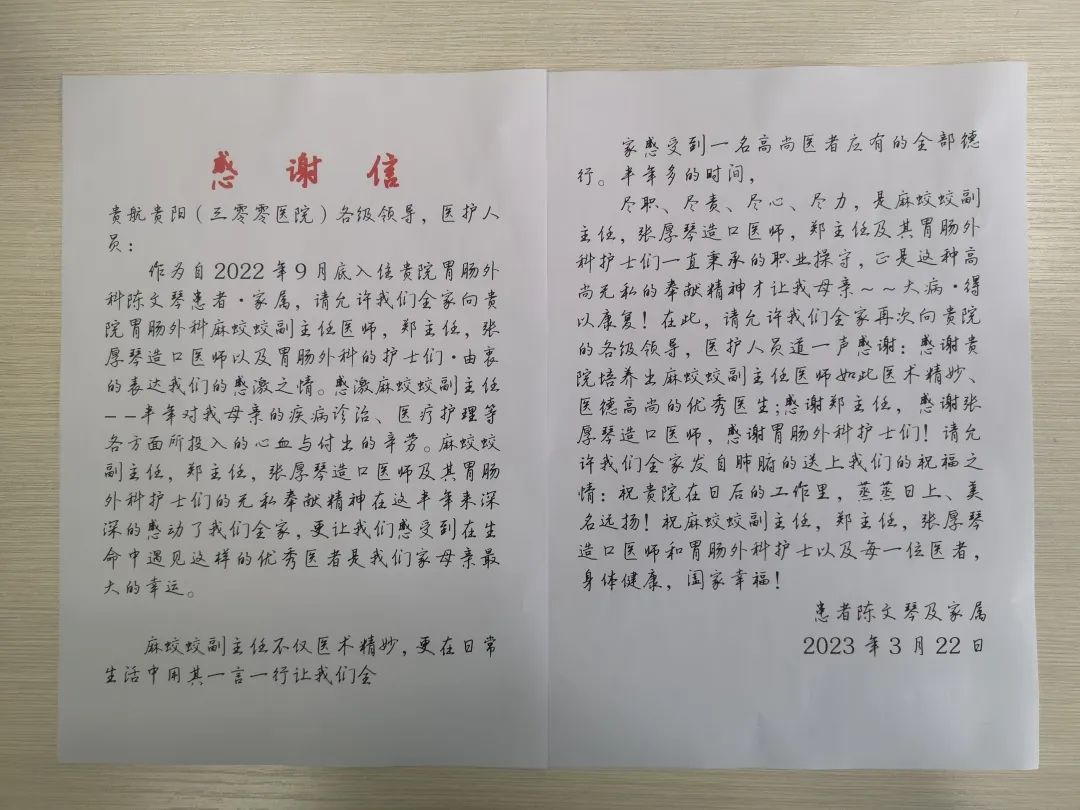 感谢信
贵航贵阳（三零零医院）各级领导，医护人
员：
作为自2022年9月底入住贵院胃肠外
科陈文琴患者·家属，请允许我们全家向贵
院胃肠外科麻蛟蛟副主任医师，郑主任，张
厚琴造口医师以及胃肠外科的护士们·由衷
的表达我们的感激之情。感激麻蛟蛟副主任
--半年对我母亲的疾病诊治、医疗护理等
各方面所投入的心血与付出的辛劳。麻蛟蛟
副主任，郑主任，张厚琴造口医师及其胃肠
外科护士们的无私奉献精神在这半年来深
深的感动了我们全家，更让我们感受到在生
命中遇见这样的优秀医者是我们家母亲最
大的幸运。
麻蛟蛟副主任不仅医术精妙，更在日常
生活中用其一言一行让我们全
家感受到一名高尚医者应有的全部德
行。半年多的时间，
尽职、尽责、尽心、尽力，是麻蛟蛟副
主任，张厚琴造口医师，郑主任及其胃肠外
科护士们一直秉承的职业操守，正是这种高
尚无私的奉献精神才让我母亲~~大病·得
以康复！在此，请允许我们全家再次向贵院
的各级领导，医护人员道一声感谢：感谢贵
院培养出麻蛟蛟副主任医师如此医术精妙、
医德高尚的优秀医生;感谢郑主任，感谢张
厚琴造口医师，感谢胃肠外科护士们！请允
许我们全家发自肺腑的送上我们的祝福之
情：祝贵院在日后的工作里，蒸蒸日上、美
名远扬！祝麻蛟蛟副主任，郑主任，张厚琴
造口医师和胃肠外科护士以及每一位医者，
身体健康，阖家幸福！
患者陈文琴及家属
2023年3月22日